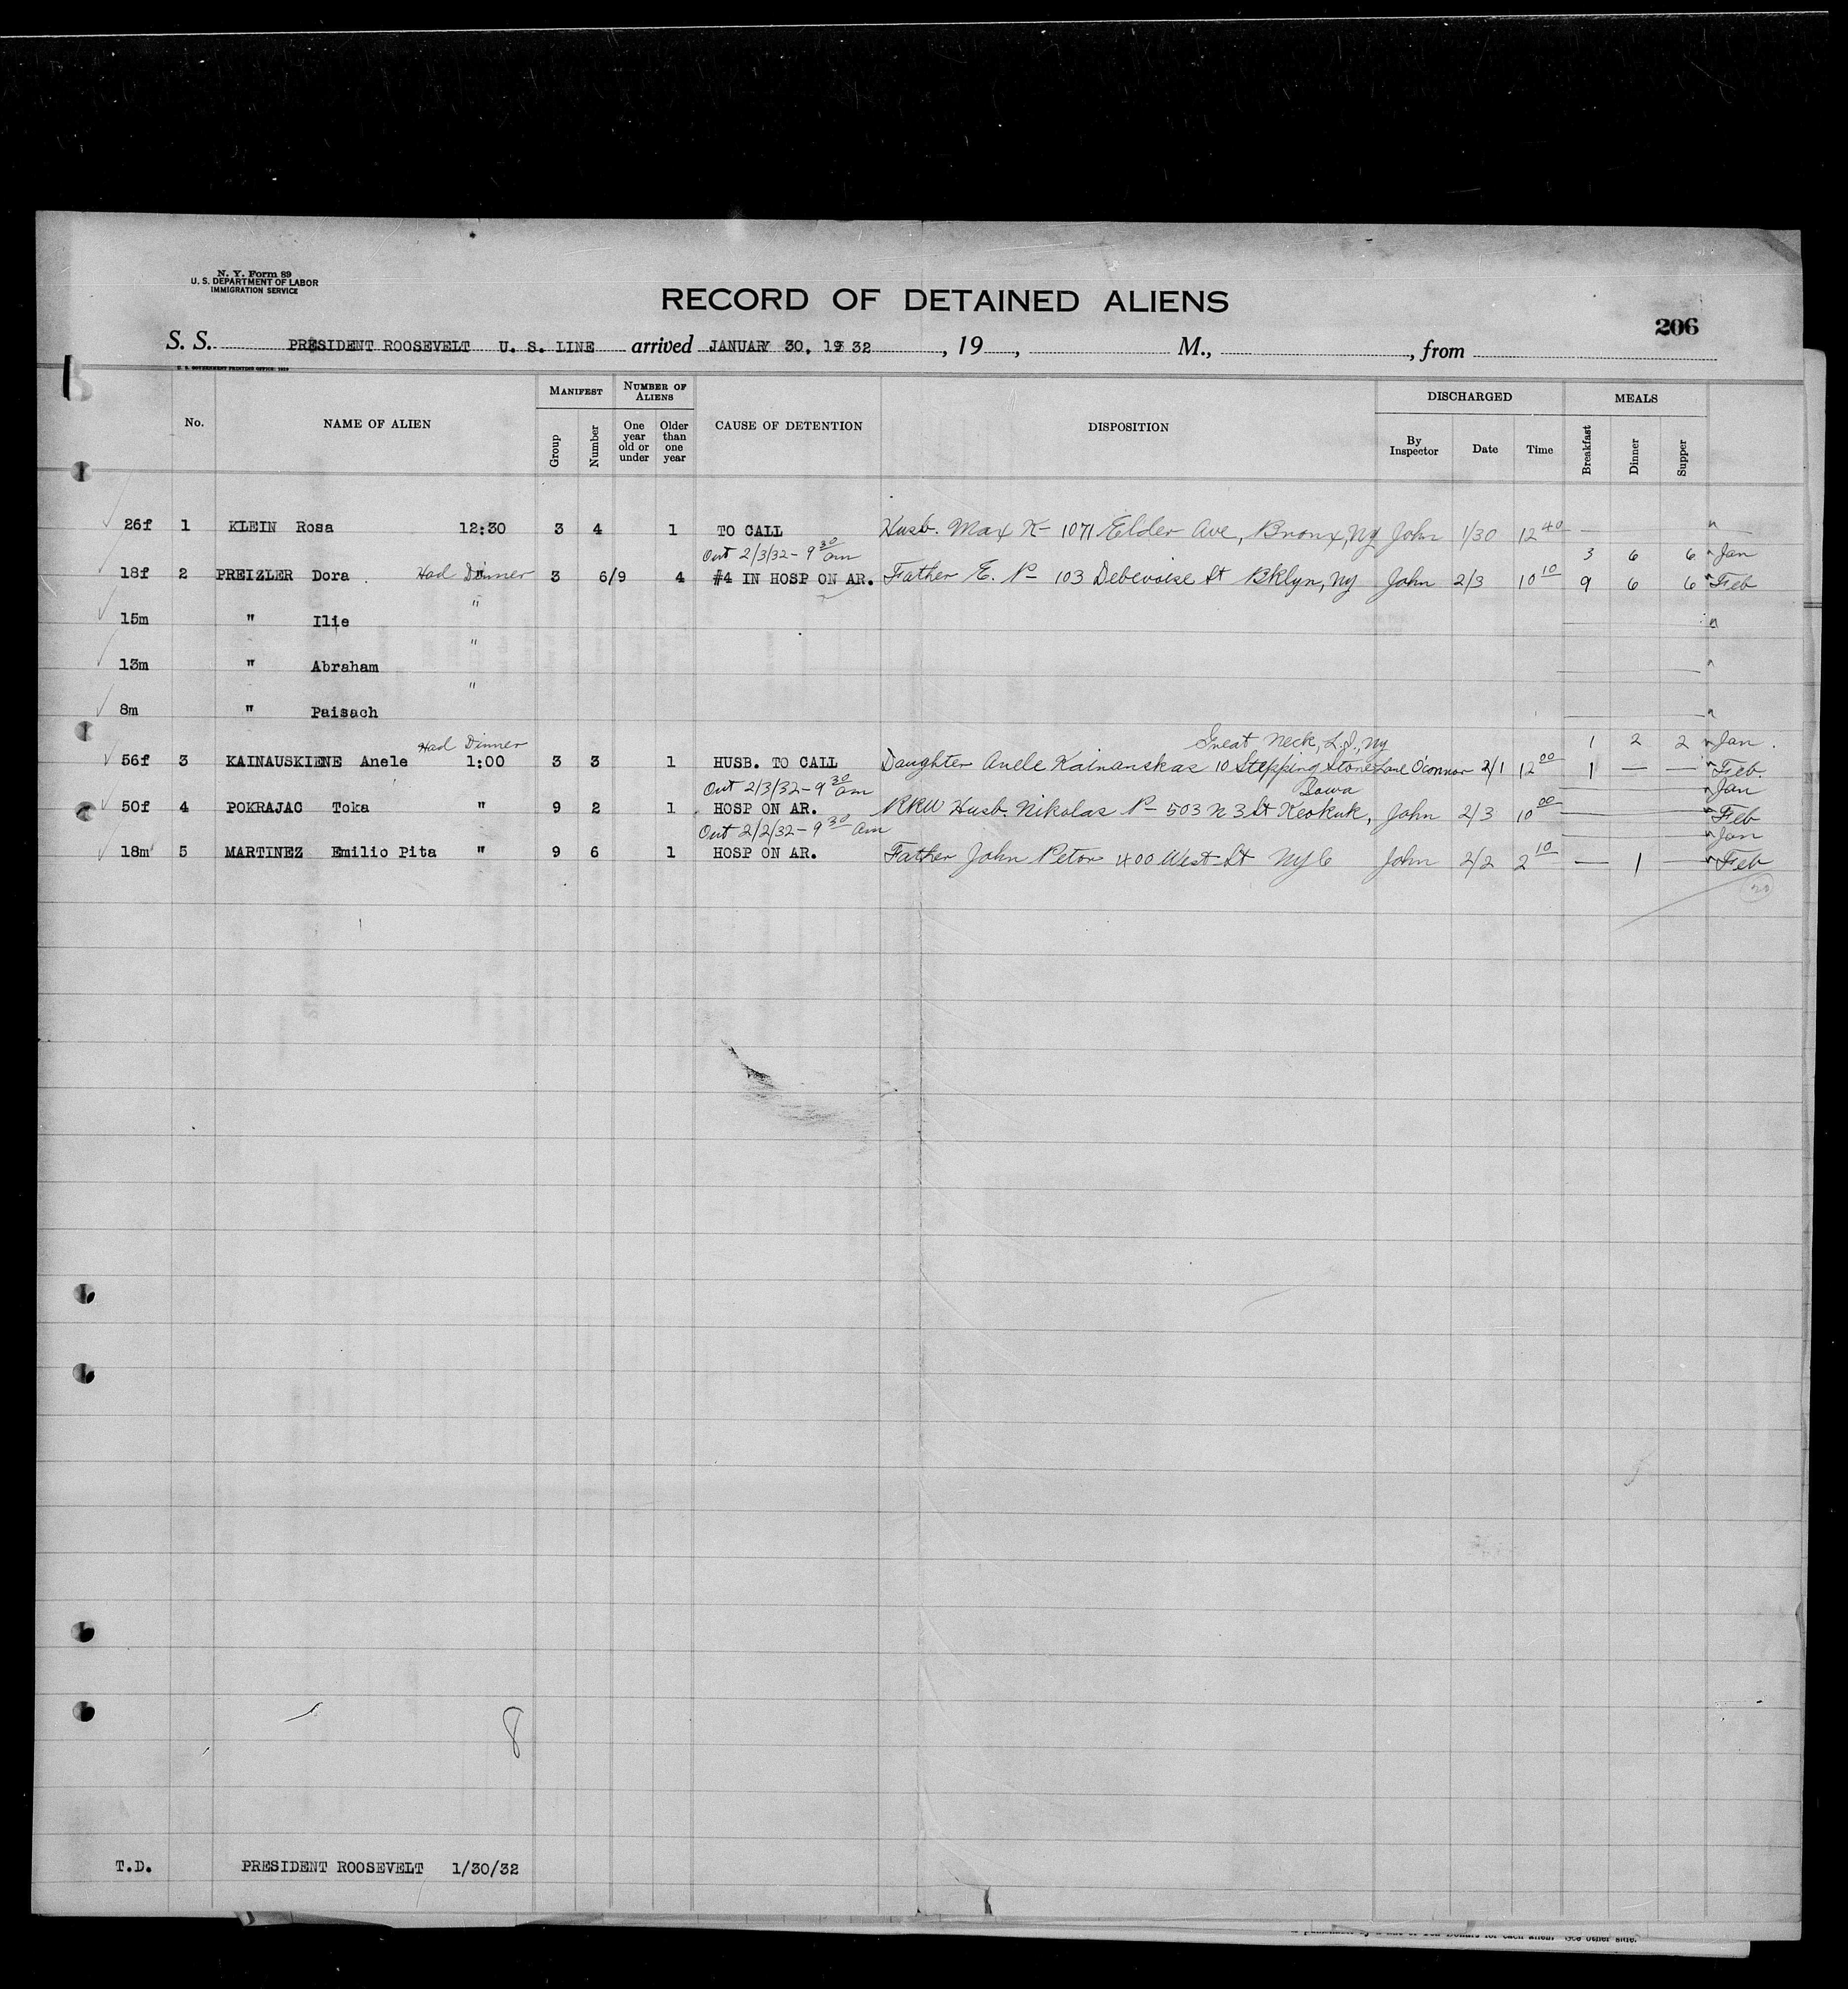 N. Y. Form 89
U. S. DEPARTMENT OF LABOR
IMMIGRATION SERVICE
RECORD OF DETAINED ALIENS
206
S. S. PRESIDENT ROOSEVELT U. S. LINE arrived JANUARY 30, 1932, 19 , M., , from
U. S. GOVERNMENT PRINTING OFFICE: 1929
No. NAME OF ALIEN MANIFEST Group Number NUMBER OF ALIENS One year old or under Older than one year CAUSE OF DETENTION DISPOSITION DISCHARGED By Inspector Date Time MEALS Breakfast Dinner Supper
26f 1 KLEIN Rosa 12:30 3 4 1 TO CALL Husb. Max K- 1071 Elder Ave, Bronx, Ny John 1/30 12 40 — "
Out 2/3/32 - 9 30 am 3 6 6 " Jan
18f 2 PREIZLER Dora Had Dinner " 3 6/9 4 #4 IN HOSP ON AR. Father E. P- 103 Debevoise St Bklyn, Ny John 2/3 10 10 9 6 6 " Feb
15m " Ilie " "
13m " Abraham " "
8m " Paisach " "
Had Dinner Great Neck, L.I., Ny 1 2 2 " Jan.
56f 3 KAINAUSKIENE Anele 1:00 3 3 1 HUSB. TO CALL Daughter Anele Kainauskas 10 Stepping Stone Lane O'Connor 2/1 12 00 1 — — " Feb.
Out 2/3/32 - 9 30 am Iowa " Jan
50f 4 POKRAJAC Toka " 9 2 1 HOSP ON AR. RRW Husb. Nikolas P- 503 N 3 St Keokuk, John 2/3 10 00 " Feb
Out 2/2/32 - 9 30 am " Jan
18m 5 MARTINEZ Emilio Pita " 9 6 1 HOSP ON AR. Father John Peton 400 West St NYC John 2/2 2 10 — 1 — " Feb
20
8
T.D. PRESIDENT ROOSEVELT 1/30/32